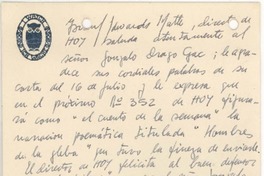 Ismael Edwards Matte, director de
HOY saluda atentamente al
señor Gonzalo Drago Gac; le agra-
dece sus cordiales palabras de su
carta del 16 de julio y le expresa que
en el próximo Nº 352 de HOY figura-
rá como "el cuento de la semana" la
narración poemática titulada "Hombres
de la gleba" que tuvo la fineza de enviarle.
El director de HOY felicita al buen defensor